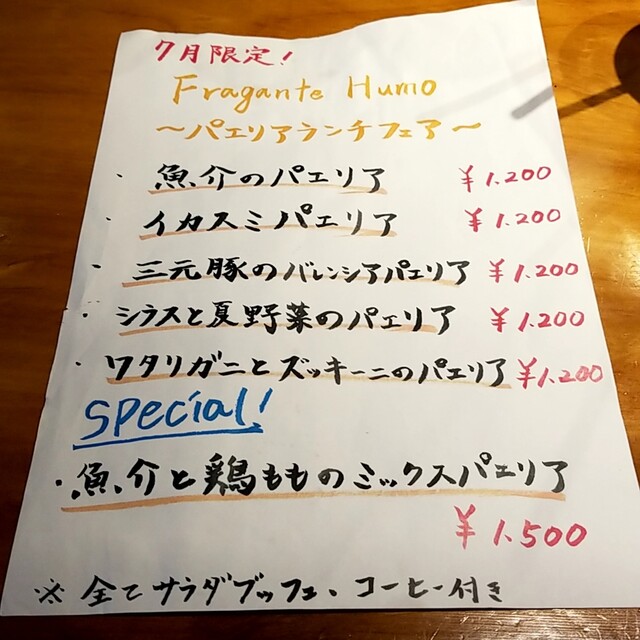 7月限定!
Fragante Humo
～パエリアランチフェア～
・魚介のパエリア ¥1.200
・イカスミパエリア ¥1.200
・三元豚のバレンシアパエリア ¥1.200
・シラスと夏野菜のパエリア ¥1.200
・ワタリガニとズッキーニのパエリア ¥1.200
Special!
・魚介と鶏もものミックスパエリア
¥1.500
※全てサラダブッフェ、コーヒー付き